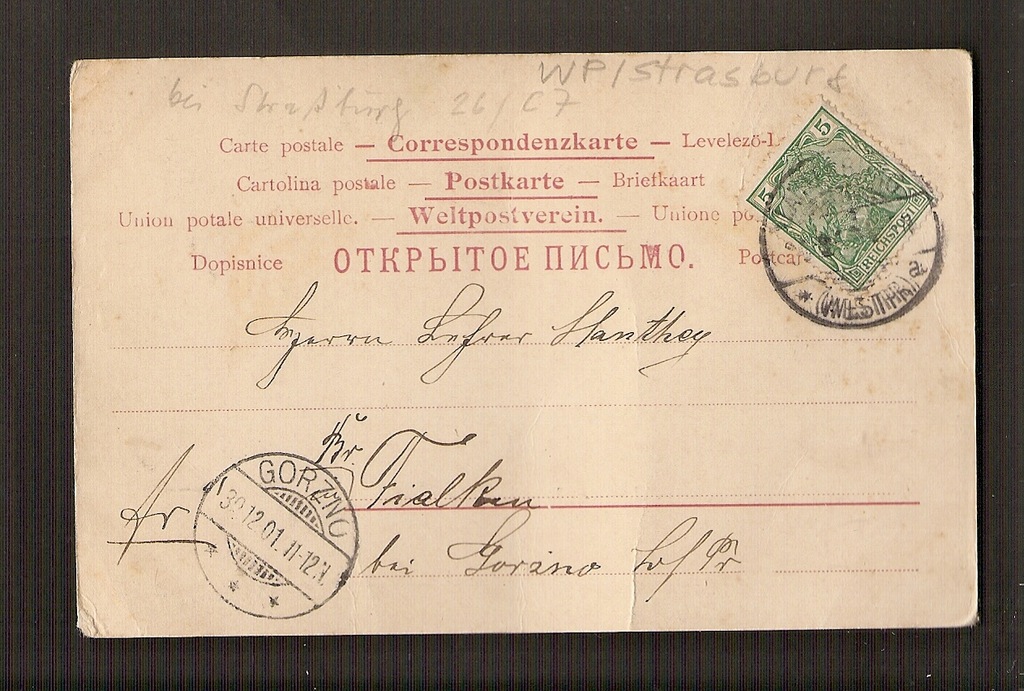 WP/Strasburg
bei Straßburg 26/C7
Carte postale — Correspondenzkarte — Levelező-L
Cartolina postale — Postkarte — Briefkaart
Union potale universelle. — Weltpostverein. — Unione po
Dopisnice ОТКРЫТОЕ ПИСЬМО. Postcar
5 5
REICHSPOST
* (WESTPR) a
Herrn Lehrer Manthey
Kr. Fialken
fr
GORZNO
30.12.01. 11-12.V.
bei Gorzno W/Pr